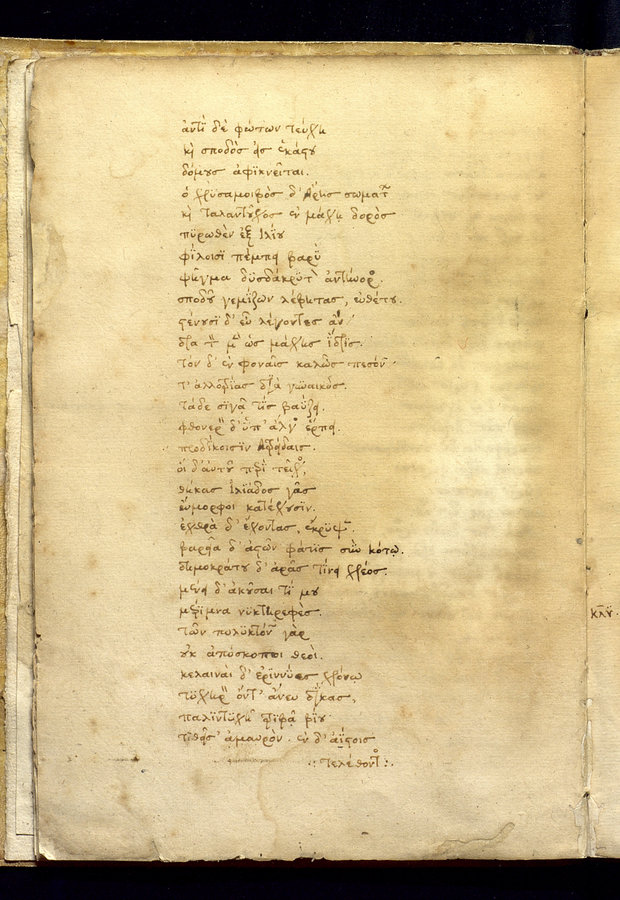 ἀντὶ δὲ φώτων τεύχη
καὶ σποδὸς εἰς ἑκάστου
δόμους ἀφικνεῖται.
ὁ χρυσαμοιβὸς δ' Ἄρης σωμάτων
καὶ ταλαντοῦχος ἐν μάχῃ δορὸς
πυρωθὲν ἐξ Ἰλίου
φίλοισι πέμπει βαρὺ
ψῆγμα δυσδάκρυτον ἀντήνορος.
σποδοῦ γεμίζων λέβητας, εὐθέτου.
στένουσι δ' εὖ λέγοντες ἄν
δρα τὸν μὲν ὡς μάχης ἴδρις.
τὸν δ' ἐν φοναῖς καλῶς πεσόν
τ' ἀλλοτρίας διὰ γυναικός.
τάδε σῖγά τις βαΰζει.
φθονερὸν δ' ὑπ' ἄλγος ἕρπει.
προδίκοισιν Ἀτρείδαις.
οἱ δ' αὐτοῦ περὶ τεῖχος,
θήκας Ἰλιάδος γᾶς
εὔμορφοι κατέχουσιν.
ἐχθρὰ δ' ἔχοντας, ἔκρυψεν.
βαρεῖα δ' ἀστῶν φάτις σὺν κότῳ.
δημοκράτου δ' ἀρᾶς τίνει χρέος.
μένει δ' ἀκοῦσαι τί μου
μέριμνα νυκτηρεφὲς.
τῶν πολυκτόνων γὰρ
οὐκ ἀπόσκοποι θεοί.
κελαιναὶ δ' ἐριννύες χρόνῳ
τυχηρὸν ὄντ' ἄνευ δίκας,
παλιντυχῆ τριβᾷ βίου
τιθεῖσ' ἀμαυρόν. ἐν δ' ἀΐστοις
τελέθοντος